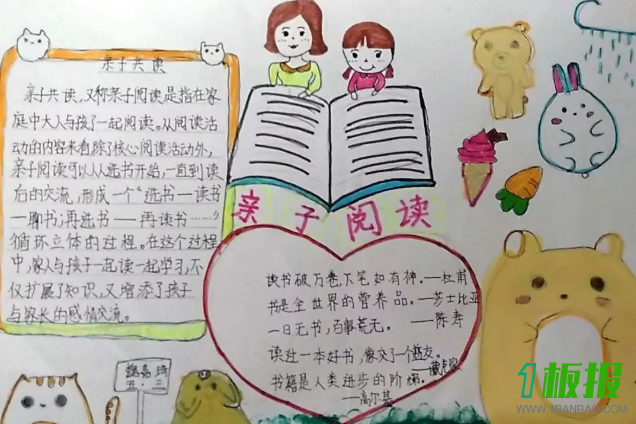 亲子共读
亲子共读，又称亲子阅读是指在家
庭中大人与孩子一起阅读。从阅读活
动的内容来看除了核心阅读活动外，
亲子阅读可以从选书开始，一直到读
后的交流，形成一个“选书——读书
——聊书；再选书——再读书……”
循环立体的过程。在这个过程
中，家人与孩子一起读一起学习，不
仅扩展了知识，又增添了孩子
与家长的感情交流。
亲子阅读
读书破万卷，下笔如有神。——杜甫
书是全世界的营养品。——莎士比亚
一日无书，百事荒无。——陈寿
读过一本好书，像交了一个益友。
——臧克家
书籍是人类进步的阶梯。
——高尔基
魏嘉琦
五·三
1板报
WWW.1BANBAO.COM